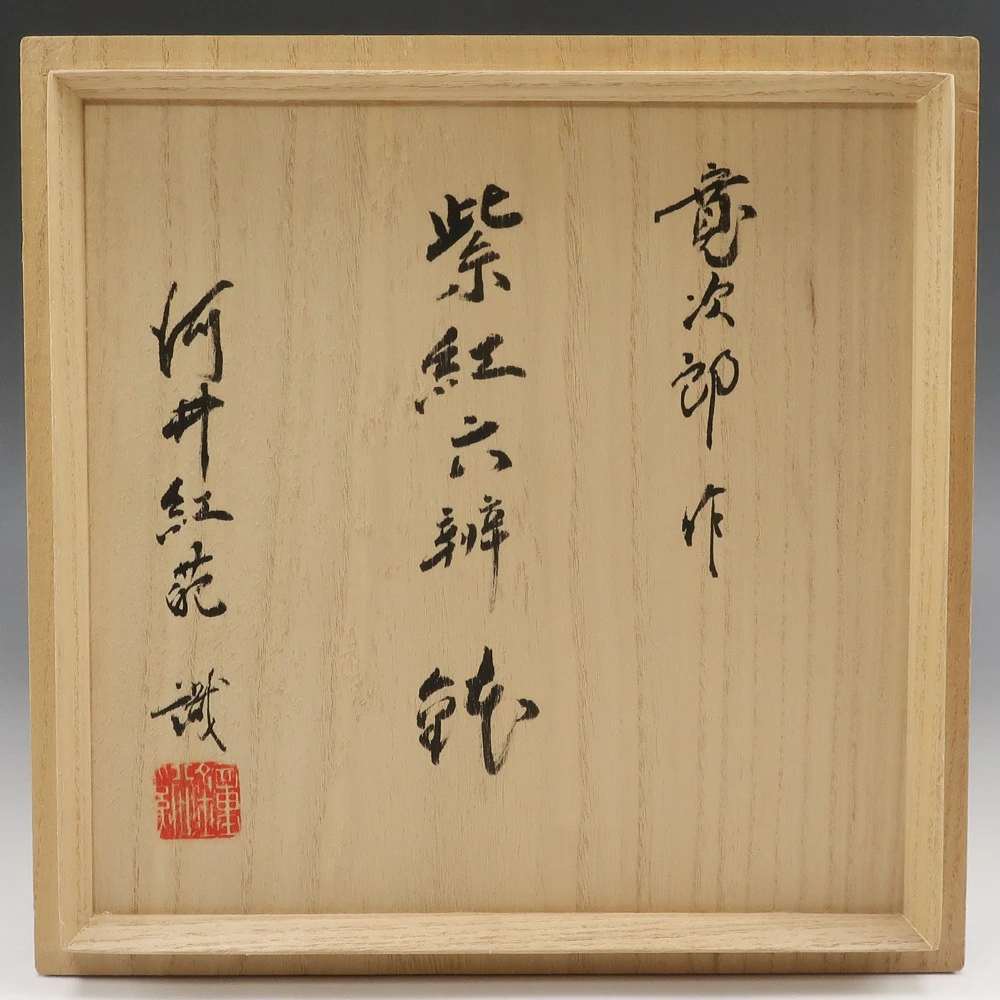 寛次郎作
紫紅六辨鉢
河井紅葩識